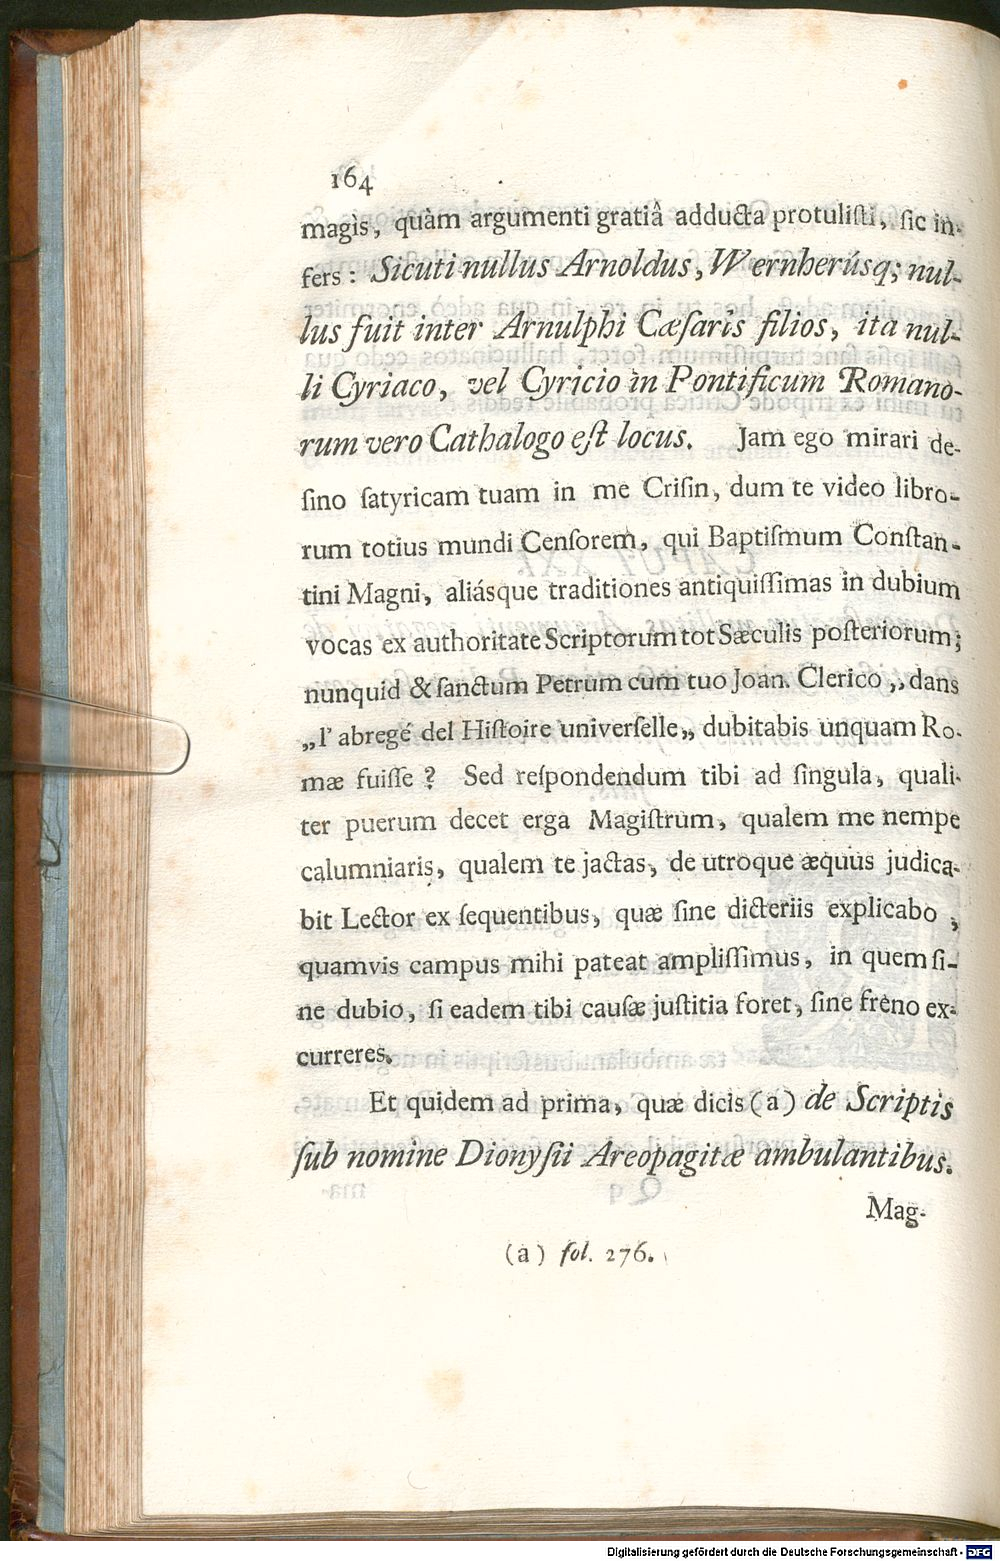 164
magìs, quàm argumenti gratiâ adducta protulisti, sic in-
fers: Sicuti nullus Arnoldus, Wernherúsq; nul-
lus fuit inter Arnulphi Cæsaris filios, ita nul-
li Cyriaco, vel Cyricio in Pontificum Romano-
rum vero Cathalogo est locus. Jam ego mirari de-
sino satyricam tuam in me Crisin, dum te video libro-
rum totius mundi Censorem, qui Baptismum Constan-
tini Magni, aliásque traditiones antiquissimas in dubium
vocas ex authoritate Scriptorum tot Sæculis posteriorum;
nunquid & sanctum Petrum cum tuo Joan. Clerico ,,dans
„l' abregé del Histoire universelle„ dubitabis unquam Ro-
mæ fuisse? Sed respondendum tibi ad singula, quali-
ter puerum decet erga Magistrum, qualem me nempe
calumniaris, qualem te jactas, de utroque æquus judica-
bit Lector ex sequentibus, quæ sine dicteriis explicabo,
quamvis campus mihi pateat amplissimus, in quem si-
ne dubio, si eadem tibi causæ justitia foret, sine frèno ex-
curreres.
Et quidem ad prima, quæ dicis (a) de Scriptis
sub nomine Dionysii Areopagitæ ambulantibus.
Mag-
(a) fol. 276.
Digitalisierung gefördert durch die Deutsche Forschungsgemeinschaft - DFG